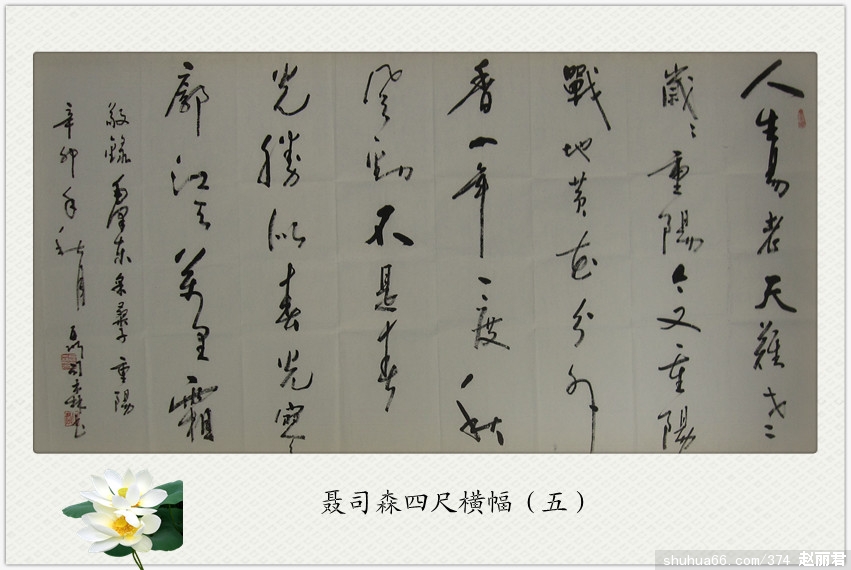 人生易老天難老
歲々重陽今又重陽
戰地黄花分外
香一年一度秋
风勁不是春
光勝似春光寥
廓江天萬里霜
敬錄毛澤东采桑子重陽
辛卯年秋月聂司森书
聂司森四尺横幅（五）
shuhua66.com/374 赵丽君